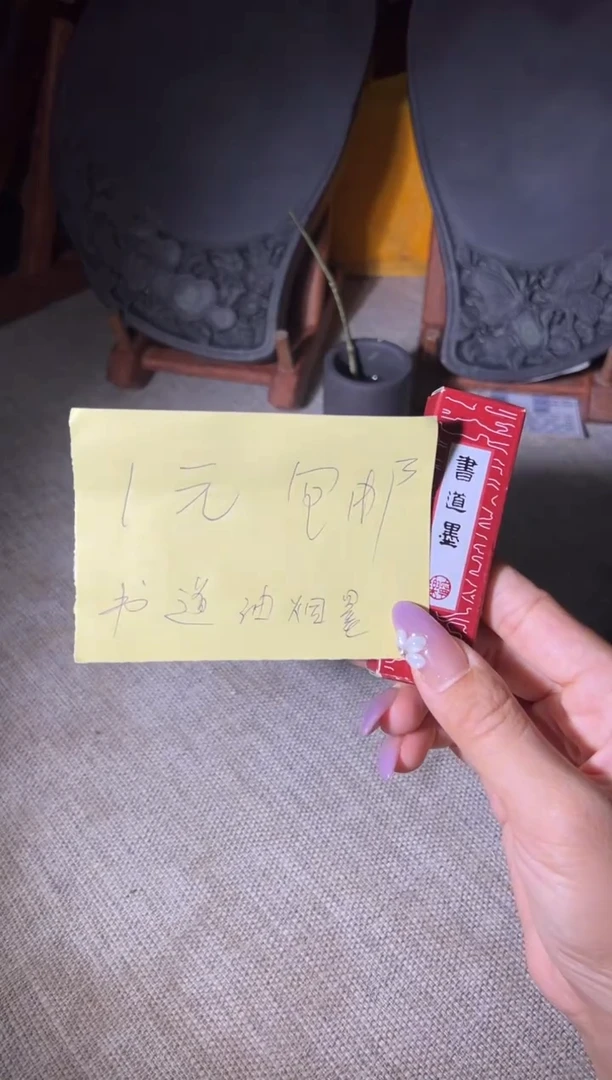 1元包邮
书道油烟墨
書道墨